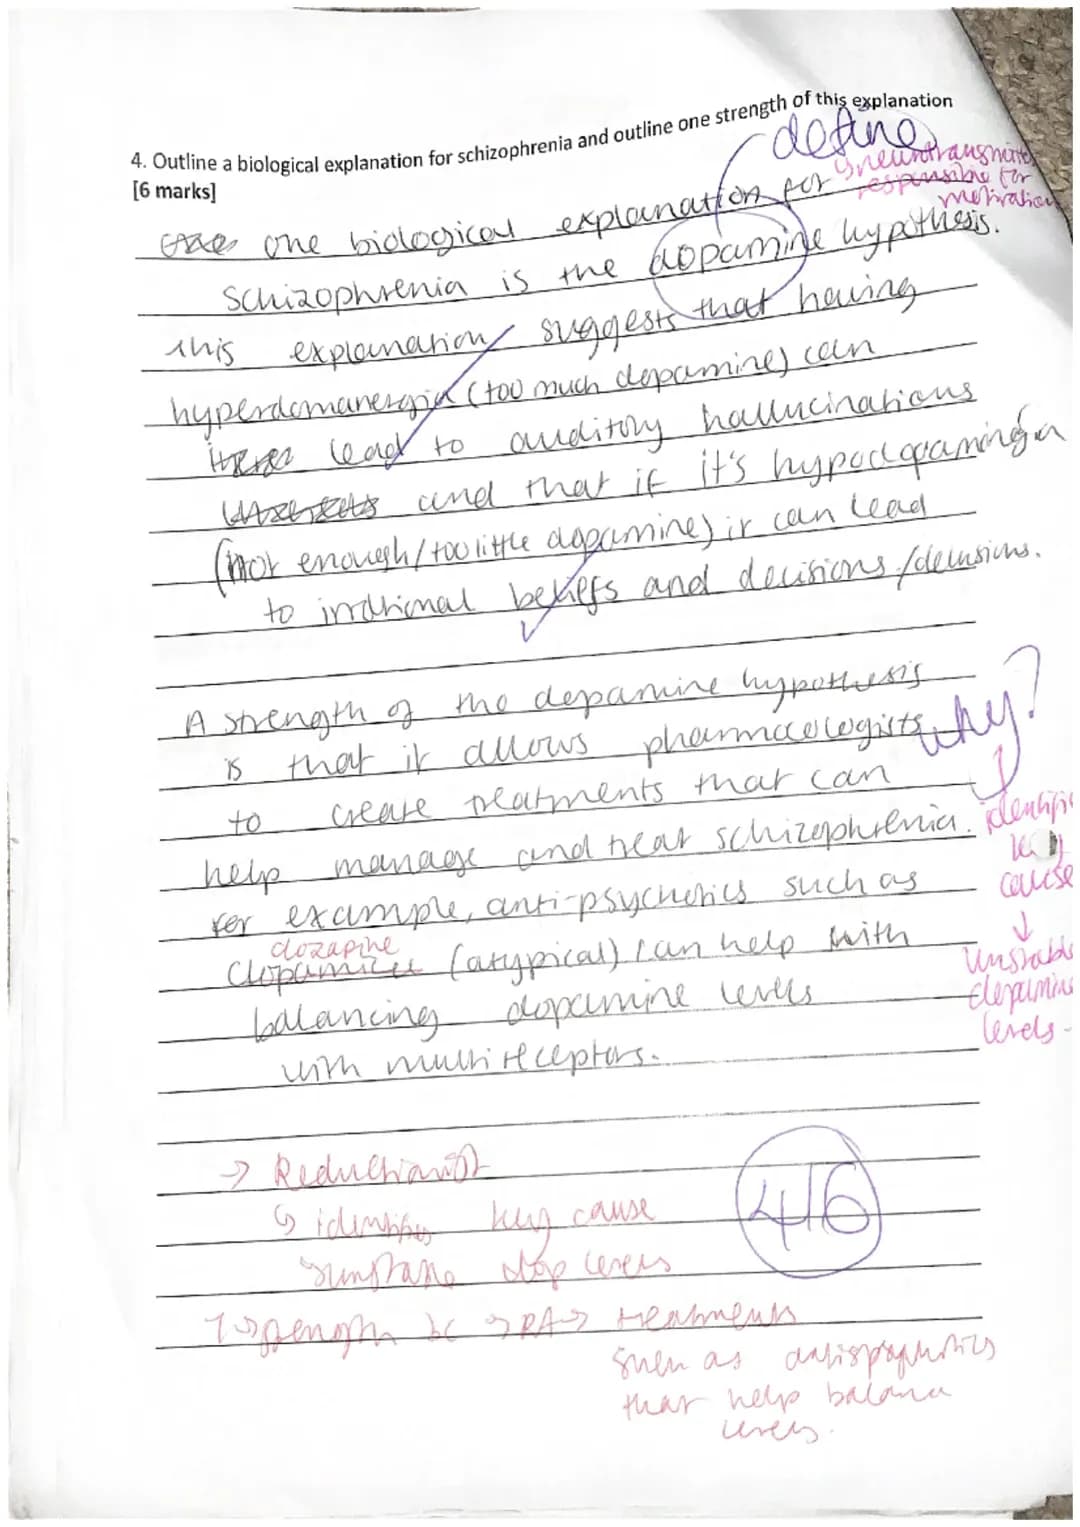 4. Outline a biological explanation for schizophrenia and outline one strength of this explanation
[6 marks]
define
↳neurotransmitter
responsible for
motivation
one biological explanation for
schizophrenia is the dopamine hypothesis.
this explanation suggests that having
hyperdomanergia (too much dopamine) can
lead to auditory hallucinations
and that if it's hypodopaminergia
(not enough/too little dopamine) it can lead
to irrational beliefs and decisions/delusions.
A strength of the dopamine hypothesis
is that it allows pharmacologists
why?
to create treatments that can
help manage and treat schizophrenia.
identifies
key
cause
↓
unstable
dopamine
levels-
for example, anti-psychotics such as
clozapine
(atypical) can help with
balancing dopamine levels
with multireceptors.
→ Reductionist
↳ identifies key cause
unstable dop levels
↳ strength bc → RA → treatments
such as antispsychotics
that help balance
levels.
4/6